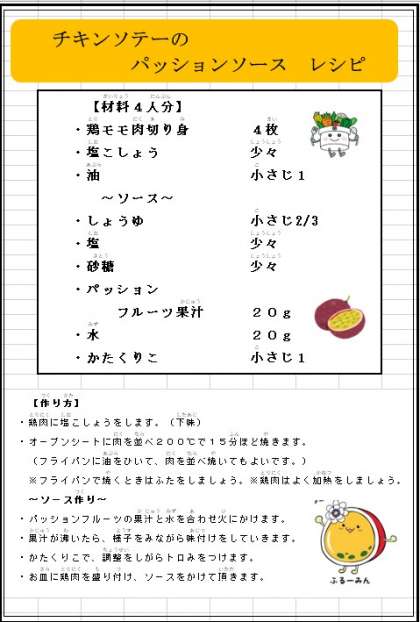 チキンソテーの
パッションソース　レシピ
【材料４人分】
・鶏モモ肉切り身　４枚
・塩こしょう　少々
・油　小さじ１
～ソース～
・しょうゆ　小さじ2/3
・塩　少々
・砂糖　少々
・パッション
フルーツ果汁　２０ｇ
・水　２０ｇ
・かたくりこ　小さじ１
【作り方】
・鶏肉に塩こしょうをします。（下味）
・オーブンシートに肉を並べ２００℃で１５分ほど焼きます。
（フライパンに油をひいて、肉を並べ焼いてもよいです。）
※フライパンで焼くときはふたをしましょう。※鶏肉はよく加熱をしましょう。
～ソース作り～
・パッションフルーツの果汁と水を合わせ火にかけます。
・果汁が沸いたら、様子をみながら味付けをしていきます。
・かたくりこで、調整をしがらトロみをつけます。
・お皿に鶏肉を盛り付け、ソースをかけて頂きます。
ぷるーみん